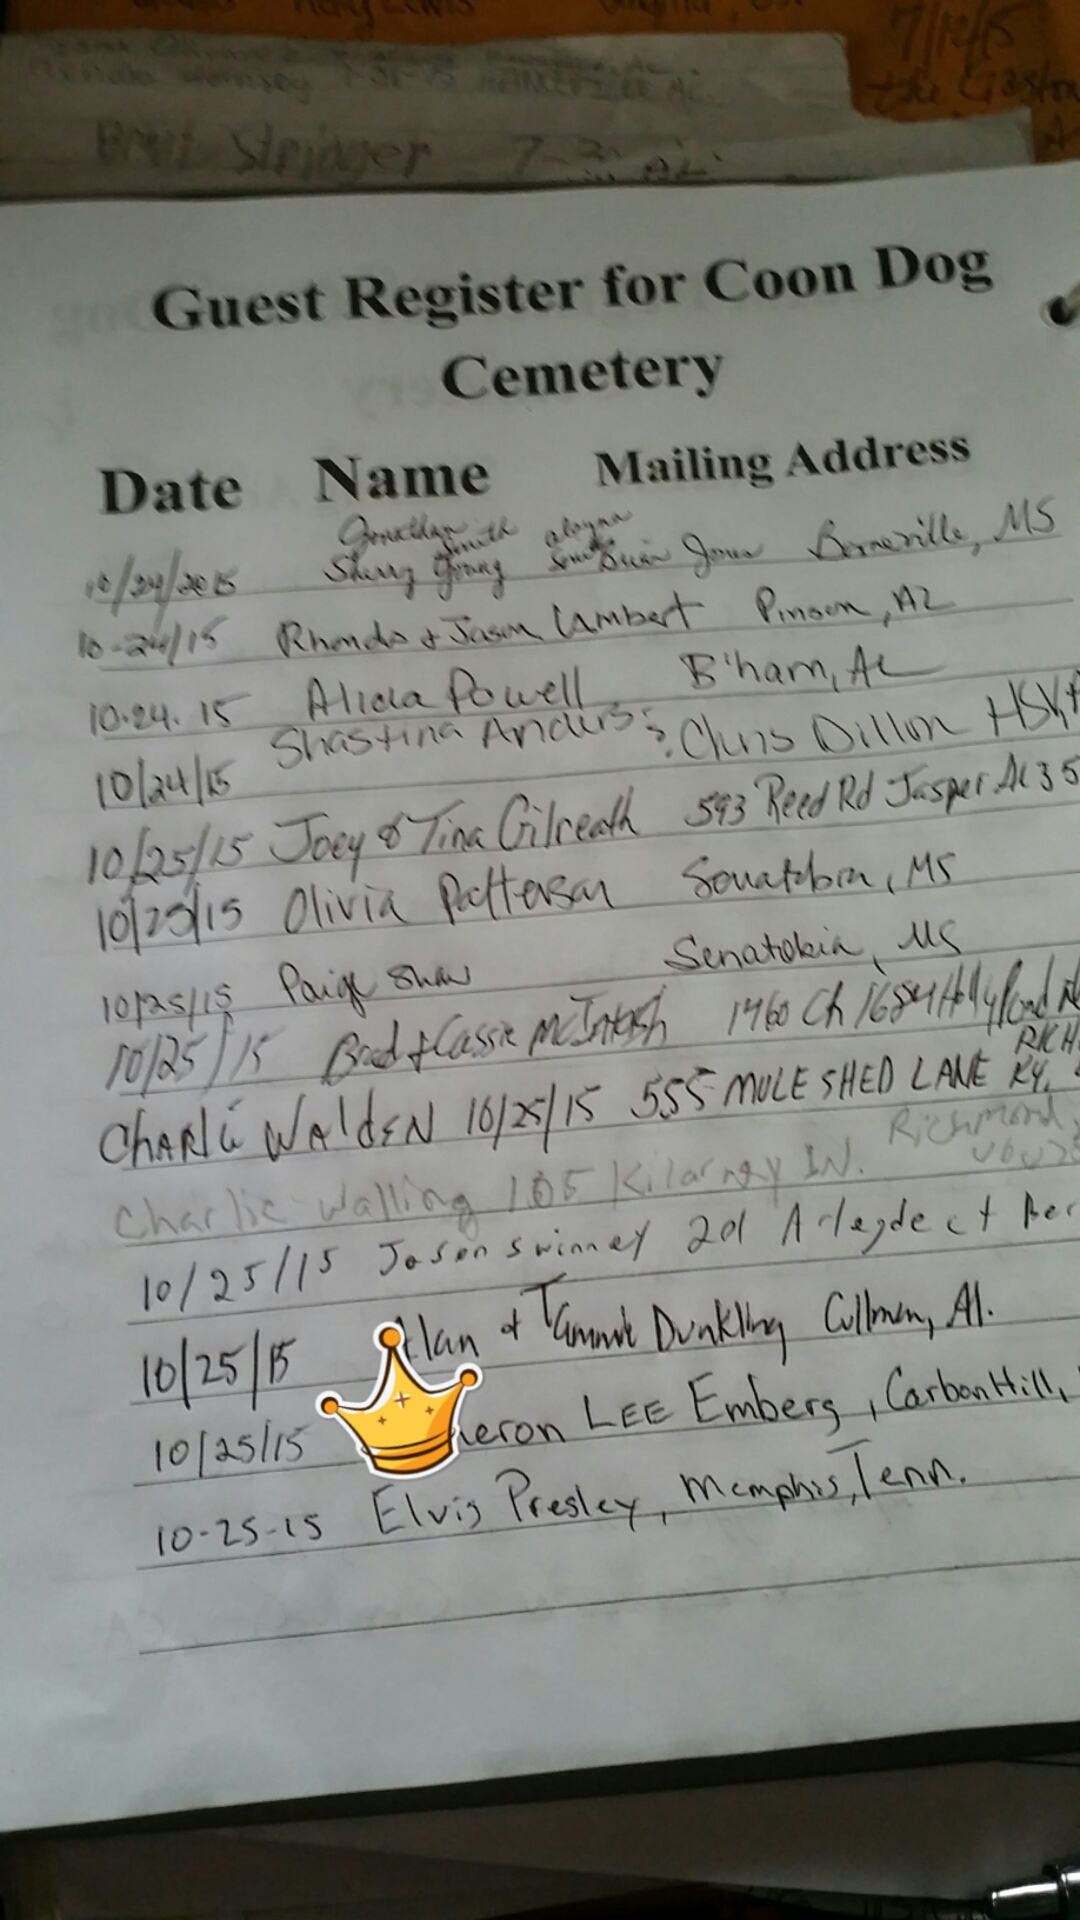 7/12/15
Brent Stringer 7-3
Guest Register for Coon Dog
Cemetery
Date Name Mailing Address
Jonathan Smith
10/24/2015 Sherry Young Brian Jones Booneville, MS
10-24/15 Rhonda & Jason Lambert Pinson, AL
10.24.15 Alicia Powell B'ham, AL
10/24/15 Shastina Anders & Chris Dillon HSV,
10/25/15 Joey & Tina Gilreath 593 Reed Rd Jasper AL 35
10/25/15 Olivia Patterson Senatobia, MS
10/25/15 Paige Shaw Senatobia, MS
10/25/15 Brad & Cassie McIntosh 1460 Ch 1684 Holly Pond
RICH
CHARLIE WALDEN 10/25/15 555 MULE SHED LANE KY.
Richmond,
Charlie Walling 105 Kilarney LN.
10/25/15 Jason Swinney 201 Arlegde ct Ber
10/25/15 Alan & Tammie Dunkling Cullman, Al.
10/25/15 eron LEE Emberg, Carbon Hill,
10-25-15 Elvis Presley, Memphis, Tenn.